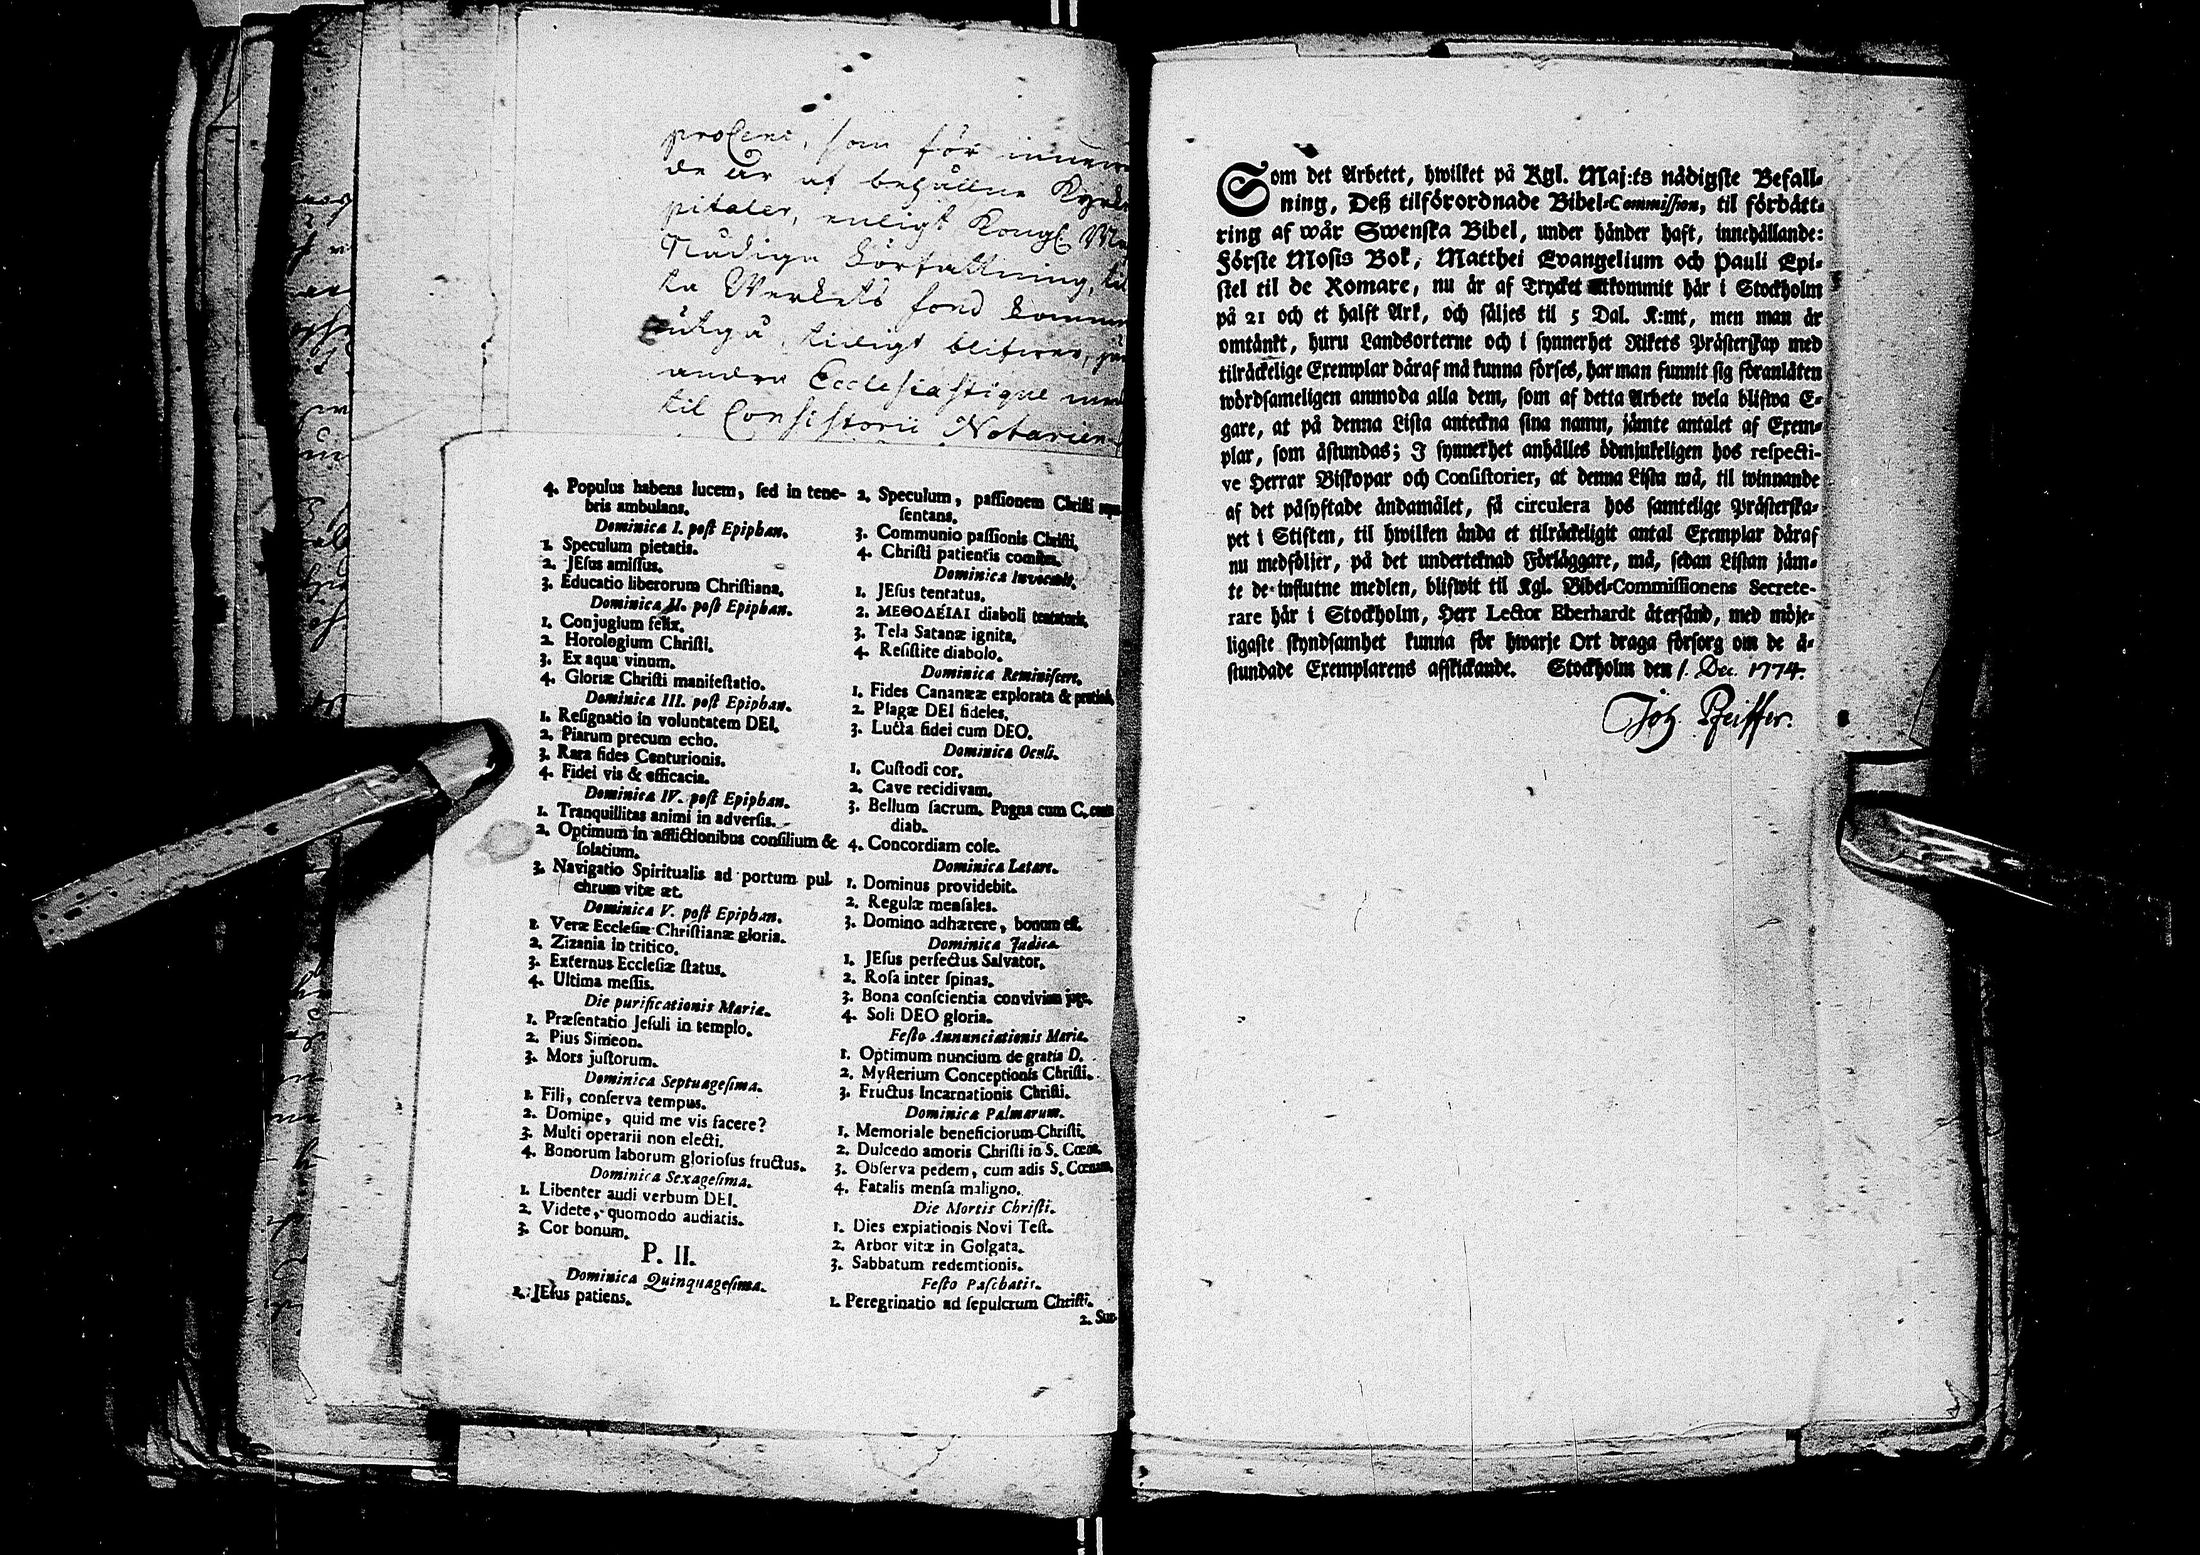 procent, som för
de år af behållne
pitaler, enligt Kongl.
Nådiga författning,
ka Werkets fond
utgå, blifwer,
andra Ecclesiastique
til Consistorii Notarien
4. Populus habens lucem, sed in tene-
bris ambulans.
Dominica I. post Epiphan.
1. Speculum pietatis.
2. JEsus amissus.
3. Educatio liberorum Christiana.
Dominica II. post Epiphan.
1. Conjugium felix.
2. Horologium Christi.
3. Ex aqua vinum.
4. Gloriæ Christi manifestatio.
Dominica III. post Epiphan.
1. Resignatio in voluntatem DEI.
2. Piarum precum echo.
3. Rara fides Centurionis.
4. Fidei vis & efficacia.
Dominica IV. post Epiphan.
1. Tranquillitas animi in adversis.
2. Optimum in afflictionibus consilium &
solatium.
3. Navigatio Spiritualis ad portum pul
chrum vitæ æt.
Dominica V. post Epiphan.
1. Veræ Ecclesiæ Christianæ gloria.
2. Zizania in tritico.
3. Externus Ecclesiæ status.
4. Ultima messis.
Die purificationis Mariæ.
1. Præsentatio Jesuli in templo.
2. Pius Simeon.
3. Mors justorum.
Dominica Septuagesima.
1. Fili, conserva tempus.
2. Domine, quid me vis facere?
3. Multi operarii non electi.
4. Bonorum laborum gloriosus fructus.
Dominica Sexagesima.
1. Libenter audi verbum DEI.
2. Videte, quomodo audiatis.
3. Cor bonum.
P. II.
Dominica Quinquagesima.
1. JEsus patiens.
2. Speculum, passionem Christi
sentans.
3. Communio passionis Christi.
4. Christi patientis comites.
Dominica Invocavit.
1. JEsus tentatus.
2. ΜΕΘΟΔΕΙΑΙ diaboli tentatoris.
3. Tela Satanæ ignita.
4. Resistite diabolo.
Dominica Reminiscere.
1. Fides Cananææ explorata &
2. Plagæ DEI fideles.
3. Lucta fidei cum DEO.
Dominica Oculi.
1. Custodi cor.
2. Cave recidivam.
3. Bellum sacrum. Pugna cum C. cum
diab.
4. Concordiam cole.
Dominica Letare.
1. Dominus providebit.
2. Regulæ mensales.
3. Domino adhærere, bonum est.
Dominica Judica.
1. JEsus perfectus Salvator.
2. Rosa inter spinas.
3. Bona conscientia convivium juge.
4. Soli DEO gloria.
Festo Annunciationis Mariæ.
1. Optimum nuncium de gratia D.
2. Mysterium Conceptionis Christi.
3. Fructus Incarnationis Christi.
Dominica Palmarum.
1. Memoriale beneficiorum Christi.
2. Dulcedo amoris Christi in S. Cœna.
3. Observa pedem, cum adis S. Cœnam.
4. Fatalis mensa maligno.
Die Mortis Christi.
1. Dies expiationis Novi Test.
2. Arbor vitæ in Golgata.
3. Sabbatum redemtionis.
Festo Paschatis.
1. Peregrinatio ad sepulcrum Christi.
2. Sur-
Som det Arbetet, hwilket på Kgl. Maj:ts nådigste Befall-
ning, Deß tilförordnade Bibel-Commission, til förbätt-
ring af wår Swenska Bibel, under händer haft, innehållande:
Förste Mosis Bok, Matthei Evangelium och Pauli Epi-
stel til de Romare, nu är af Trycket utkommit här i Stockholm
på 21 och et halft Ark, och säljes til 5 Dal. K:mt, men man är
omtänkt, huru Landsorterne och i synnerhet Rikets Prästerskap med
tilräckelige Exemplar däraf må kunna förses, har man funnit sig föranlåten
wördsameligen anmoda alla dem, som af detta Arbete wela blifwa E-
gare, at på denna Lista anteckna sina namn, jämte antalet af Exem-
plar, som åstundas; I synnerhet anhålles ödmjukeligen hos respecti-
ve Herrar Biskopar och Consistorier, at denna Lista må, til winnande
af det påsyftade ändamålet, få circulera hos samtelige Prästerska-
pet i Stiften, til hwilken ända et tilräckeligit antal Exemplar däraf
nu medföljer, på det underteknad Förläggare, må, sedan Listan jäm-
te de influtne medlen, blifwit til Kgl. Bibel-Commissionens Secrete-
rare här i Stockholm, Herr Lector Eberhardt återsänd, med möje-
ligaste skyndsamhet kunna för hwarje Ort draga försorg om de å-
stundade Exemplarens afskickande. Stockholm den 1. Dec. 1774.
Joh. Pfeiffer.